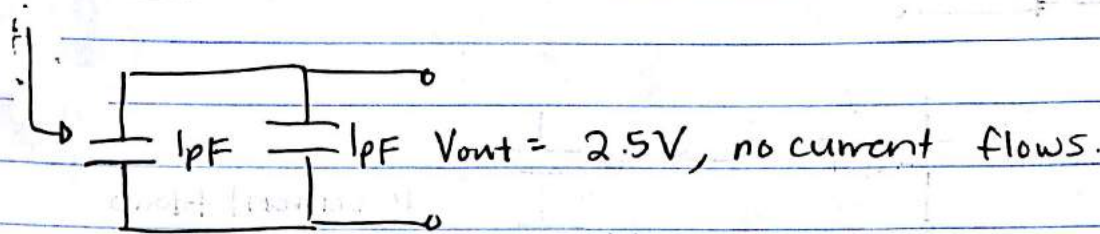 1pF 1pF Vout = 2.5V, no current flows.